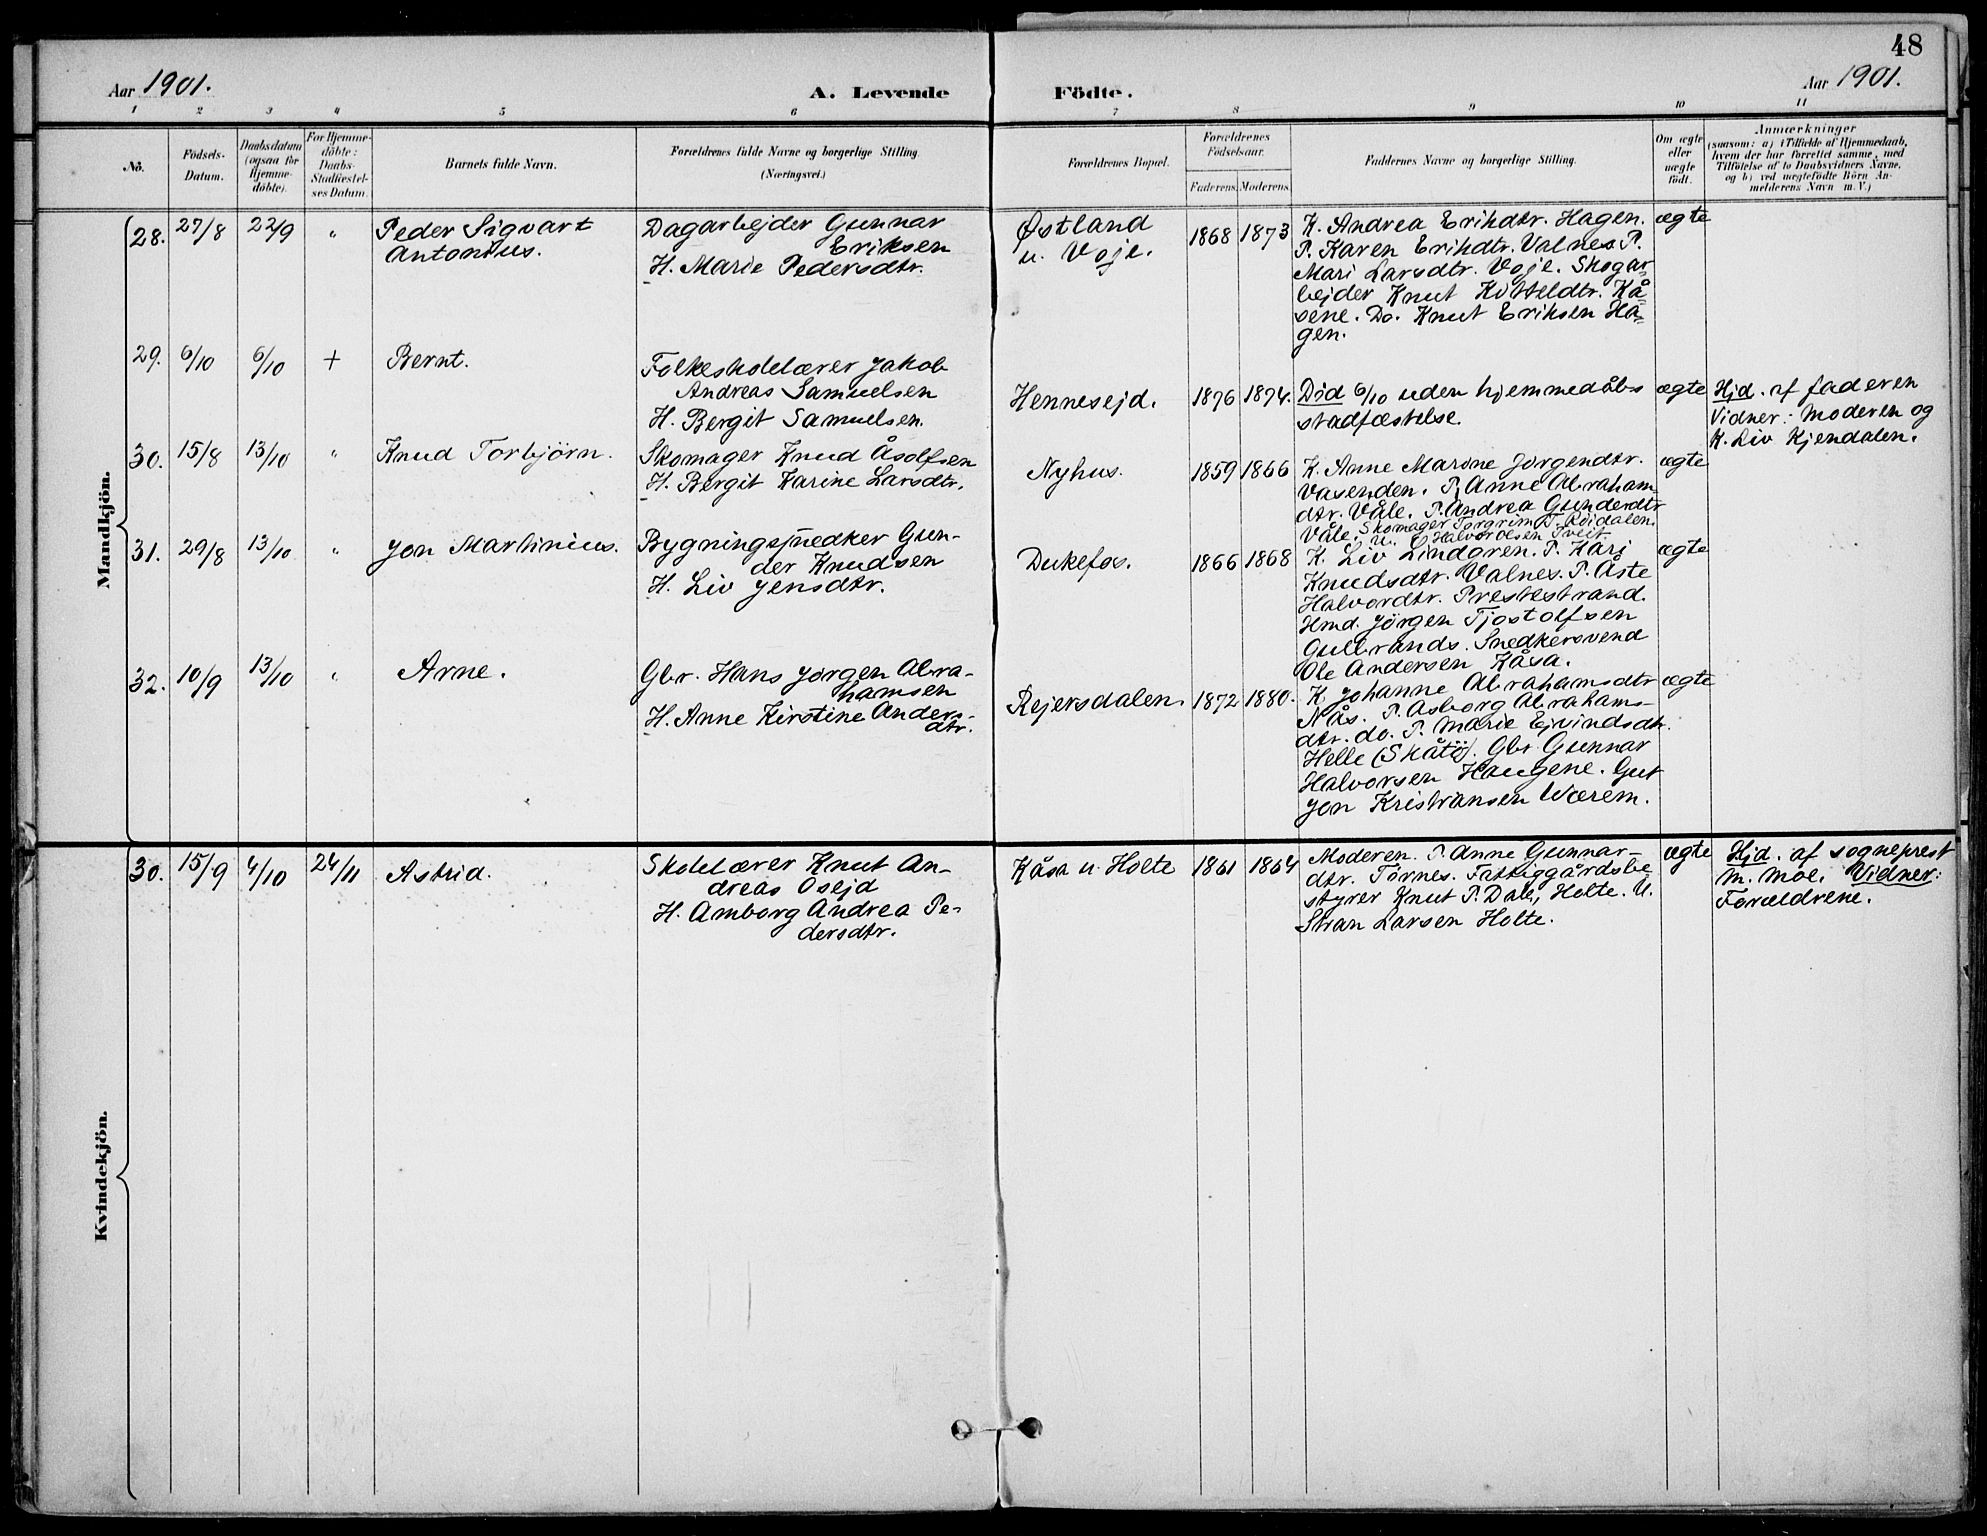 48
Aar 1901.
A. Levende Födte.
Aar 1901.
1 2 3 4 5 6 7 8 9 10 11
No.
Födsels-
Datum.
Daabsdatum
(ogsaa for
Hjemme-
döbte).
For Hjemme-
döbte:
Daabs-
Stadfæstel-
ses Datum.
Barnets fulde Navn.
Forældrenes fulde Navne og borgerlige Stilling.
(Næringsvei.)
Forældrenes Bopæl.
Forældrenes
Födselsaar.
Faderens. Moderens.
Faddernes Navne og borgerlige Stilling.
Om ægte
eller
uægte
födt.
Anmærkninger
(saasom: a) i Tilfælde af Hjemmedaab,
hvem der har forrettet samme, med
Tilföielse af to Daabsvidners Navne,
og b) ved uægtefödte Börn An-
melderens Navn m. V.)
Mandkjön.
28. 27/8 22/9 "
Peder Sigvart
Antonius.
Dagarbejder Gunnar
Eriksen
H. Marie Pedersdtr.
Østland
u. Voje.
1868 1873
K. Andrea Erikdtr. Hagen.
P. Karen Erikdtr. Valnes. P.
Mari Larsdtr. Voje. Skogar-
bejder Knut Kitteldtr. Kå-
sene. Do. Knut Eriksen Ha-
gen.
ægte
29. 6/10 6/10 +
Bernt.
Folkeskolelærer Jakob
Andreas Samuelsen
H. Bergit Samuelsen.
Hennesejd.
1876 1874.
Död 6/10 uden hjemmedåbs
stadfæstelse.
ægte
Hjd. af faderen
Vidner: Moderen og
K. Liv Kjendalen.
30. 15/8 13/10 "
Knud Torbjörn.
Skomager Knud Åsolfsen
H. Bergit Karine Larsdtr.
Nyhus.
1859 1866
K. Anne Marone Jörgendtr.
Vasenden. P. Anne Abraham
dtr. Våle. P. Andrea Gunderdtr
Våle. Skomager Torgrim T. Röidalen.
U. Halvorolsen Tveit.
ægte
31. 29/8 13/10 "
Jon Martinius.
Bygningssnedker Gun-
der Knudsen
H. Liv Jensdtr.
Dukefos.
1866 1868
K. Liv Lindgren. P. Kari
Knudsdtr. Valnes. P. Åste
Halvordtr. Prestestrand.
Hmd. Jörgen Tjostolfsen
Gulbrands. Snedkersvend
Ole Andersen Kåsa.
ægte
32. 10/9 13/10 "
Arne.
Gbr. Hans Jörgen Abra-
hamsen
H. Anne Kirstine Anders-
dtr.
Rejersdalen.
1872 1880.
K. Johanne Abrahamsdtr
Nås. P. Asborg Abrahams-
dtr. do. P. Marie Ejvindsdtr.
Helle (Skåtö). Gbr. Gunnar
Halvorsen Haugene. Gut
Jon Kristiansen Wærem.
ægte
Kvindekjön.
30. 15/9 4/10 24/11
Astrid.
Skolelærer Knut An-
dreas Osejd
H. Amborg Andrea Pe-
dersdtr.
Kåsa u. Holte
1861 1864
Moderen. P. Anne Gunnar-
dtr. Törnes. Fattiggårdsbe
styrer Knut P. Dal, Holte. U.
Stian Larsen Holte.
ægte
Hjd. af sogneprest
M. Moe. Vidner:
Forældrene.